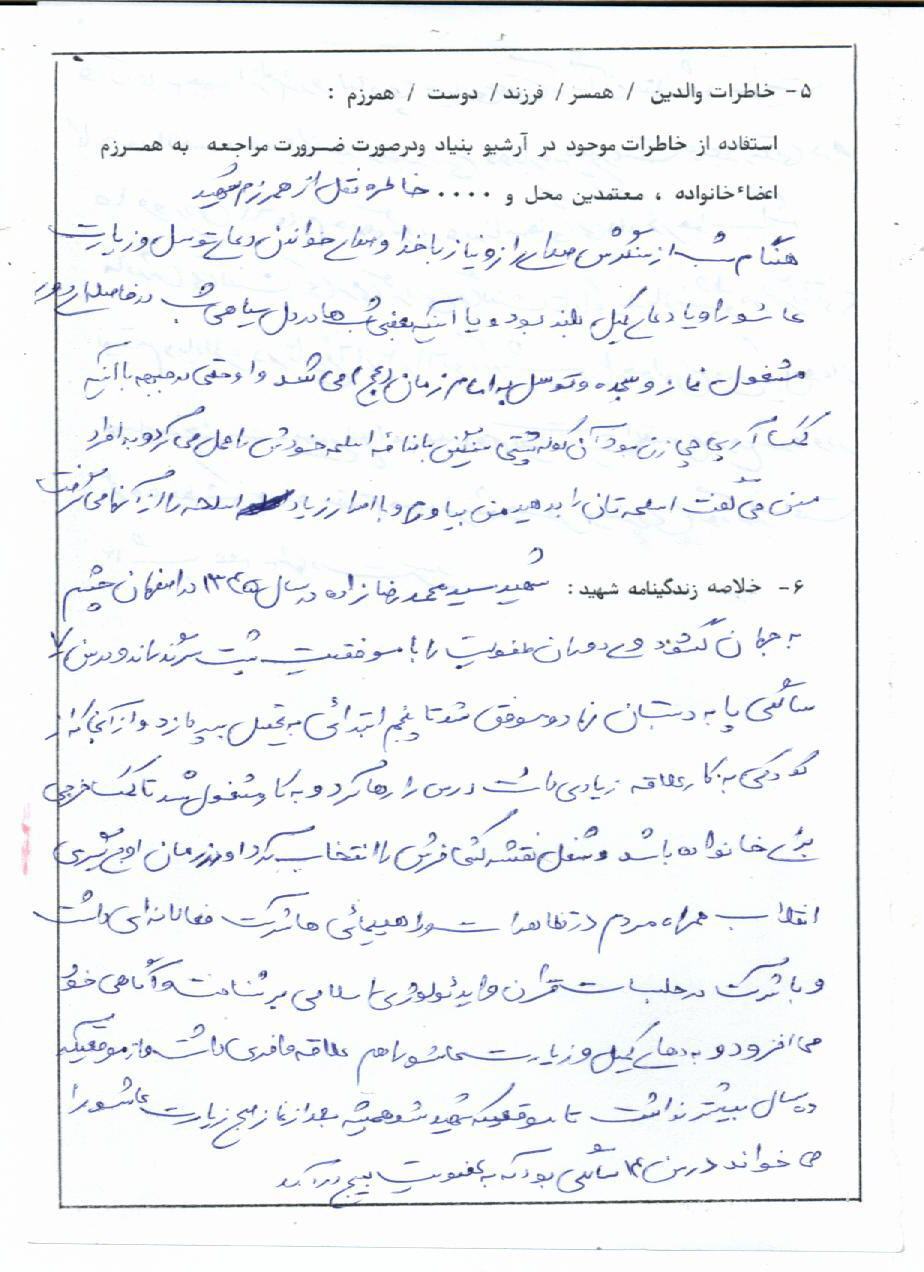 ۵- خاطرات والدین / همسر / فرزند / دوست / همرزم :
استفاده از خاطرات موجود در آرشیو بنیاد ودرصورت ضرورت مراجعه به همرزم
اعضاء خانواده ، معتمدین محل و .... خاطره نقل از همرزم شهید
هنگام شب از سنگرش صدای راز و نیاز با خدا و صدای خواندن دعای توسل و زیارت
عاشورا و یا دعای کمیل بلند بود و یا آنکه بعضی شب ها در دل سیاهی شب در فاصله ای دورتر
مشغول نماز و سجده و توسل به امام زمان (عج) می شد و او حتی در جبهه با آنکه
کمک آرپی جی زن بود آن کوله پشتی سنگین باضافه اسلحه خودش را حمل می کرد و به افراد
مسن می گفت اسلحه تان را بدهید من بیاورم و با اصرار زیاد اسلحه را از آنها می گرفت
۶- خلاصه زندگینامه شهید : شهید سید محمد رضا زاده در سال ۱۳۴۵ در اصفهان چشم
به جهان گشود وی دوران طفولیت را با موفقیت پشت سر گذراند و در سن ۷
سالگی پا به دبستان نهاد و موفق شد تا پنجم ابتدائی به تحصیل بپردازد و از آنجا که از
کودکی به کار علاقه زیادی داشت درس را رها کرد و به کار مشغول شد تا کمک خرجی
برای خانواده باشد و شغل نقشه کشی فرش را انتخاب کرد او در زمان اوج گیری
انقلاب همراه مردم در تظاهرات و راهپیمائی ها شرکت فعالانه ای داشت
و با شرکت در جلسات قرآن و ایدئولوژی اسلامی بر شناخت و آگاهی خود
می افزود و به دعای کمیل و زیارت عاشورا هم علاقه وافری داشت و از موقعیکه
سال بیشتر نداشت تا موقعیکه شهید شد همیشه بعد از نماز صبح زیارت عاشورا
می خواند در سن ۱۴ سالگی بود که به عضویت بسیج درآمد